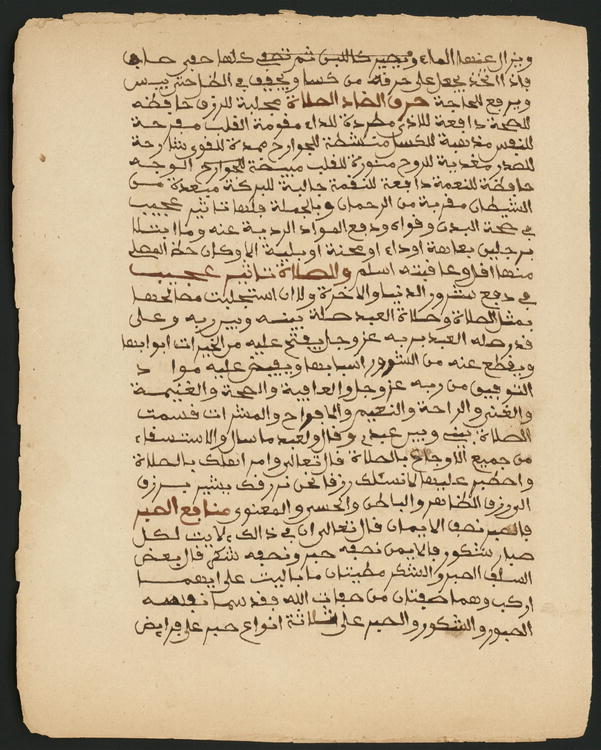 ويزال عنها الماء ويصير كاللبن ثم تصفى كلها حتى
فإذا يجعل على خرفه من كساو يجفف في الظل حتى ييبس
ويرفع للحاجة حرف الضاد الصلاة مجلبة للرزق حافظة
للصحة دافعة للاذى مطردة للداء مقومة القلب مفرحة
للنفس مذهبة للكسل منشطة للجوارح ممدة للقوى شارحة
للصدر مغذية للروح منورة للقلب مبيضة للوجه
حافظة للنعمة دافعة للنقمة جالبة للبركة مبعدة من
الشيطان مقربة من الرحمان وبالجملة فلها تاثير عجيب
في صحة البدن وقواه ودفع المواد الردية عنه وما ابتلا
برجلين بعاهة اوداء او محنة او بلية الا وكان حظ المصلى
منها اقل وعاقبته اسلم والصلاة تاثير عجيب
في دفع شرور الدنيا والاخرة ولا ان استجلبت مصالحها
بمثل الصلاة وصلاة العبد صلة بينه وبين ربه وعلى
قدر صلة العبد بربه عز وجل يفتح عليه من الخيرات ابوابها
ويقطع عنه من الشرور اسبابها ويفيض عليه مواد
التوفيق من ربه عز وجل والعافية والصحة والغنيمة
والغنى والراحة والنعيم والافراح والمسرات قسمت
الصلاة بيني وبين عبدي وقال ولعبد ما سال والاستسفاء
من جميع الاوجاع بالصلاة قال تعالى وامر اهلك بالصلاة
واصطبر عليها لا نسئلك رزقا نحن نرزقك يشير برزق
الى رزق الظاهر والباطن والحسي والمعنوي منافع الصبر
فالصبر نصف الايمان قال تعالى ان في ذالك ءلايت لكل
صبار شكور فالايمن نصفه صبر ونصفه شكر قال بعض
السلف الصبر والشكر مطيتان ما باليت على ايهما
اركب وهما صفتان من صفات الله فقد سما نفسه
الصبور والشكور والصبر على ثلاثة انواع صبر على فرايض